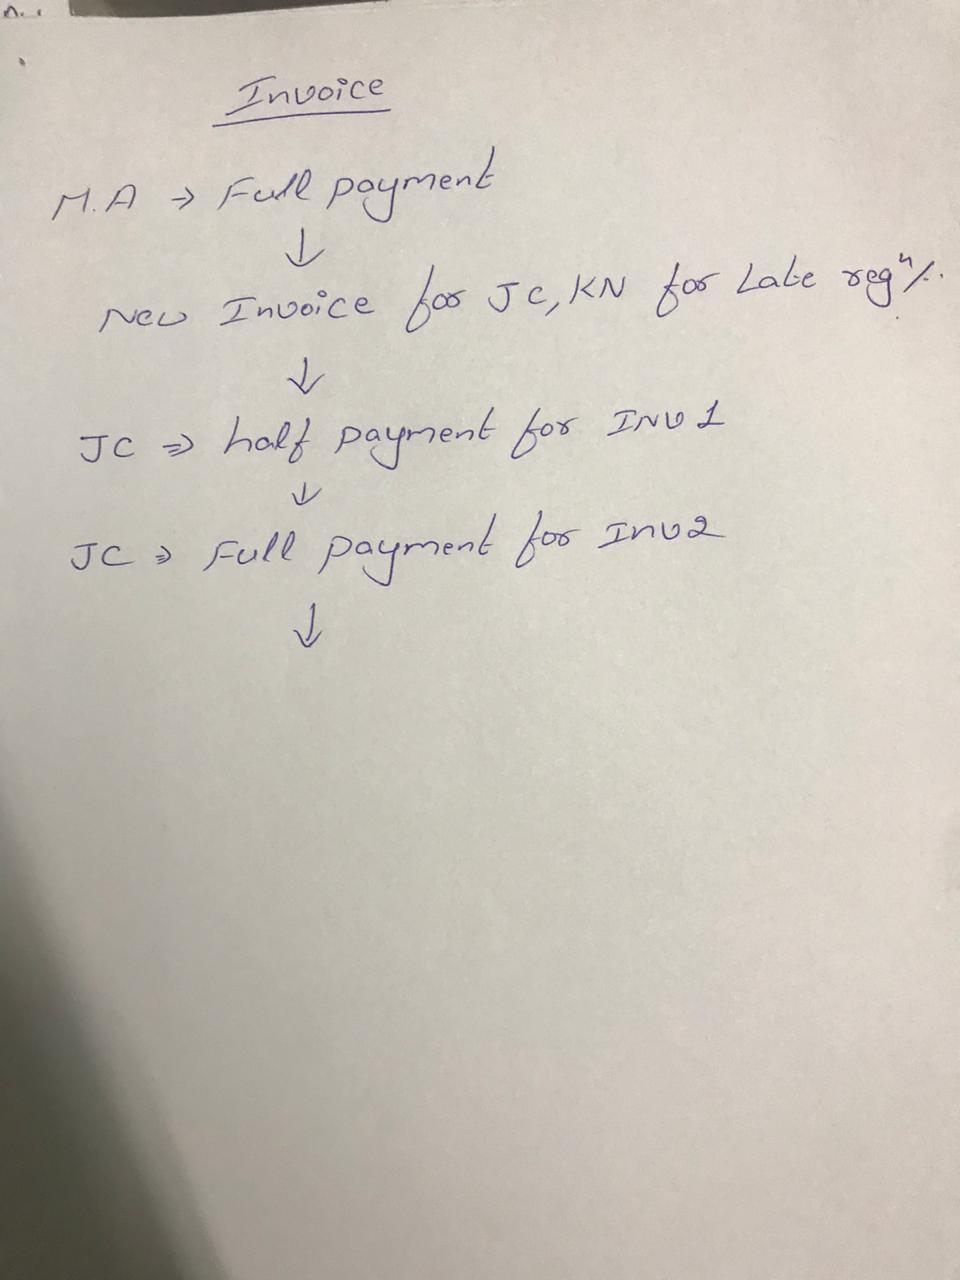 Invoice
M.A → Full payment
↓
New Invoice for JC, KN for Late regⁿ/.
↓
JC ⇒ half payment for INV 1
↓
JC ⇒ Full payment for Inv2
↓